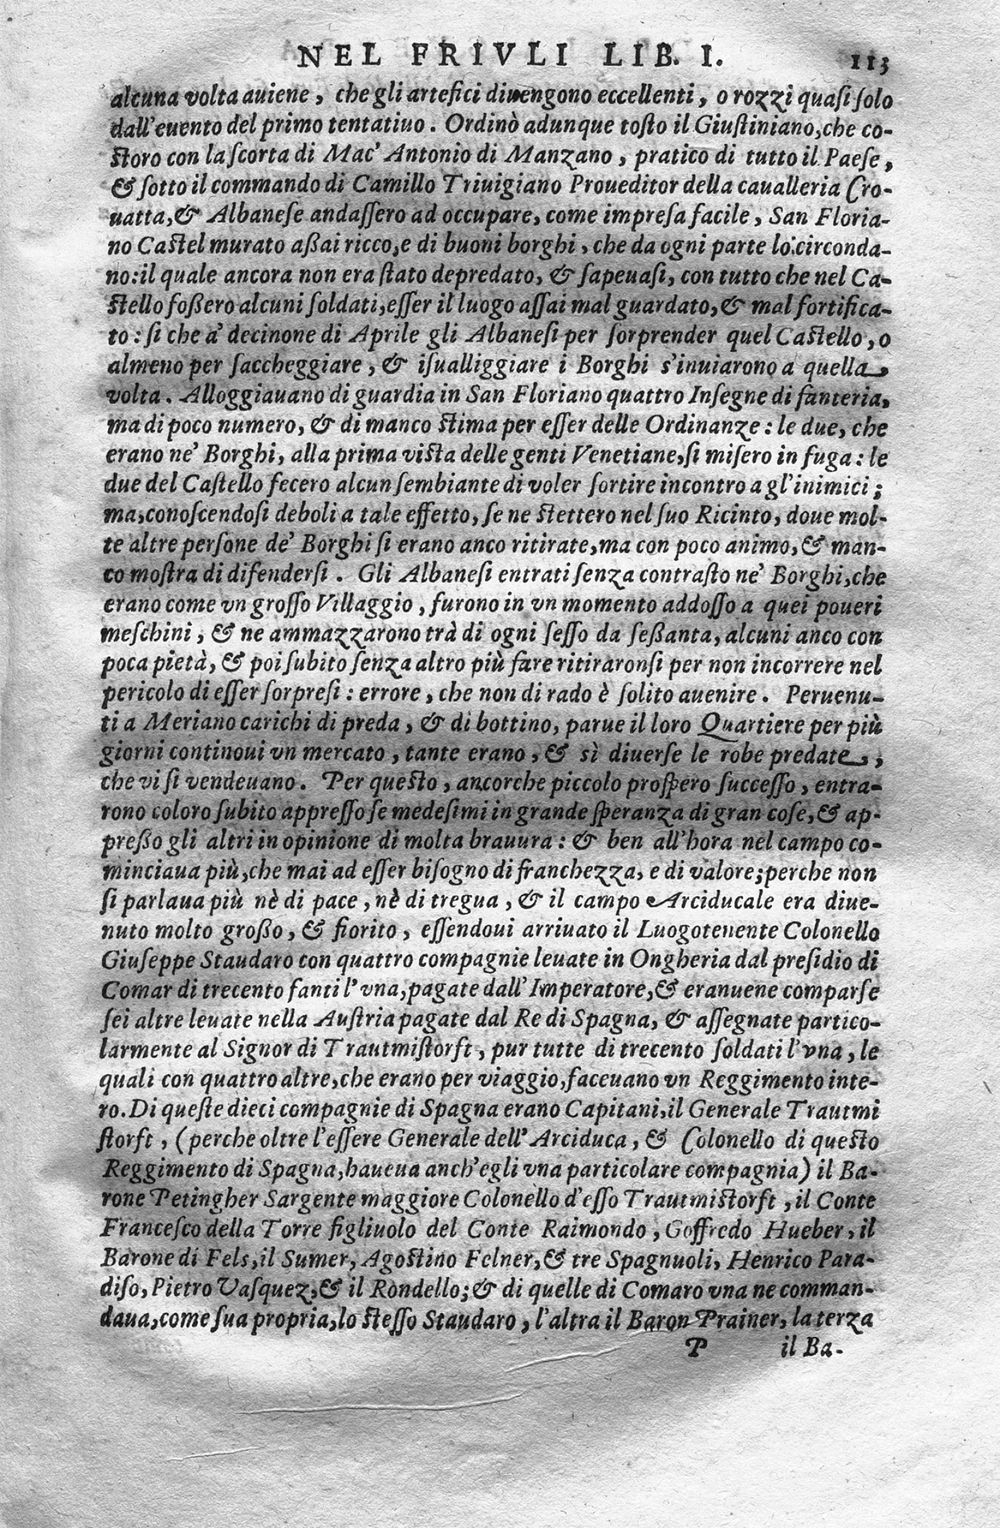 NEL FRIVLI LIB. I. 113
alcuna volta auiene, che gli artefici diuengono eccellenti, o rozzi quaſi ſolo
dall'euento del primo tentatiuo. Ordinò adunque toſto il Giuſtiniano, che co-
ſtoro con la ſcorta di Mac' Antonio di Manzano, pratico di tutto il Paeſe,
& ſotto il commando di Camillo Triuigiano Proueditor della caualleria Cro-
uatta, & Albaneſe andaſſero ad occupare, come impreſa facile, San Floria-
no Caſtel murato aßai ricco, e di buoni borghi, che da ogni parte lo circonda-
no: il quale ancora non era ſtato depredato, & ſapeuaſi, con tutto che nel Ca-
ſtello foßero alcuni ſoldati, eſſer il luogo aſſai mal guardato, & mal fortifica-
to: ſi che a' decinone di Aprile gli Albaneſi per ſorprender quel Caſtello, o
almeno per ſaccheggiare, & iſualliggiare i Borghi s'inuiarono a quella
volta. Alloggiauano di guardia in San Floriano quattro Inſegne di fanteria,
ma di poco numero, & di manco ſtima per eſſer delle Ordinanze: le due, che
erano ne' Borghi, alla prima viſta delle genti Venetiane, ſi miſero in fuga: le
due del Caſtello fecero alcun ſembiante di voler ſortire incontro a gl'inimici;
ma, conoſcendoſi deboli a tale effetto, ſe ne ſtettero nel ſuo Ricinto, doue mol-
te altre perſone de' Borghi ſi erano anco ritirate, ma con poco animo, & man-
co moſtra di difenderſi. Gli Albaneſi entrati ſenza contraſto ne' Borghi, che
erano come vn groſſo Villaggio, furono in vn momento addoſſo a quei poueri
meſchini, & ne ammazzarono trà di ogni ſeſſo da ſeßanta, alcuni anco con
poca pietà, & poi ſubito ſenza altro più fare ritiraronſi per non incorrere nel
pericolo di eſſer ſorpreſi: errore, che non di rado è ſolito auenire. Peruenu-
ti a Meriano carichi di preda, & di bottino, parue il loro Quartiere per più
giorni continoui vn mercato, tante erano, & sì diuerſe le robe predate,
che vi ſi vendeuano. Per queſto, ancorche piccolo proſpero ſucceſſo, entra-
rono coloro ſubito appreſſo ſe medeſimi in grande ſperanza di gran coſe, & ap-
preßo gli altri in opinione di molta brauura: & ben all'hora nel campo co-
minciaua più, che mai ad eſſer biſogno di franchezza, e di valore; perche non
ſi parlaua più nè di pace, nè di tregua, & il campo Arciducale era diue-
nuto molto großo, & fiorito, eſſendoui arriuato il Luogotenente Colonello
Giuſeppe Staudaro con quattro compagnie leuate in Ongheria dal preſidio di
Comar di trecento fanti l'vna, pagate dall'Imperatore, & eranuene comparſe
ſei altre leuate nella Auſtria pagate dal Re di Spagna, & aſſegnate partico-
larmente al Signor di Trautmiſtorft, pur tutte di trecento ſoldati l'vna, le
quali con quattro altre, che erano per viaggio, faceuano vn Reggimento inte-
ro. Di queſte dieci compagnie di Spagna erano Capitani, il Generale Trautmi
ſtorft, (perche oltre l'eſſere Generale dell'Arciduca, & Colonello di queſto
Reggimento di Spagna, haueua anch'egli vna particolare compagnia) il Ba-
rone Petingher Sargente maggiore Colonello d'eſſo Trautmiſtorft, il Conte
Franceſco della Torre figliuolo del Conte Raimondo, Goffredo Hueber, il
Barone di Fels, il Sumer, Agoſtino Felner, & tre Spagnuoli, Henrico Para-
diſo, Pietro Vaſquez, & il Rondello; & di quelle di Comaro vna ne comman-
daua, come ſua propria, lo ſteſſo Staudaro, l'altra il Baron Prainer, la terza
P il Ba-